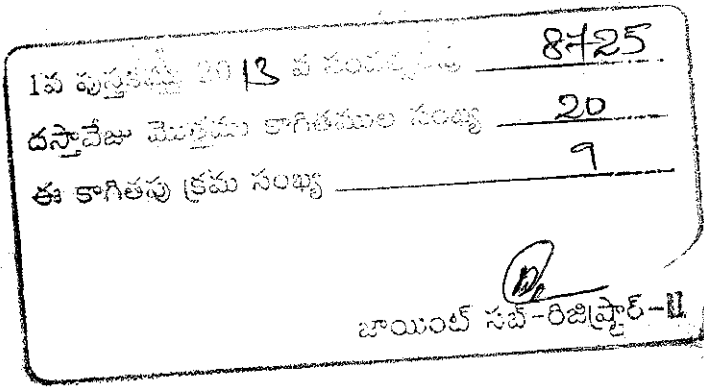 1వ పుస్తకము 2013 వ సంవత్సరపు 8725
దస్తావేజు మొత్తము కాగితముల సంఖ్య 20
ఈ కాగితపు క్రమ సంఖ్య 9
జాయింట్ సబ్-రిజిస్ట్రార్-II